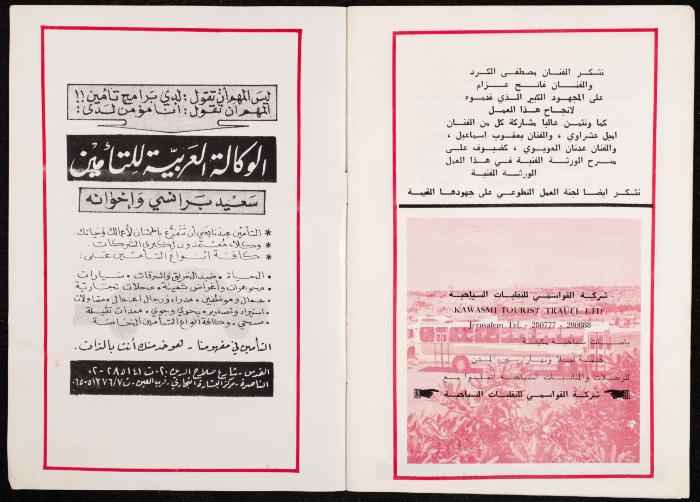 نشكر الفنان مصطفى الكرد
والفنان فاتح عزام
على المجهود الكبير الذي قدموه
لانجاح هذا العمل
كما ونثمن عاليا مشاركة كل من الفنان
اميل عشراوي ، والفنان يعقوب اسماعيل ،
والفنان عدنان العويوي ، كضيوف على
مسرح الورشة الفنية في هذا العمل
الورشة الفنية
نشكر ايضا لجنة العمل التطوعي على جهودها القيمة
شركة القواسمي للنقليات السياحية
KAWASMI TOURIST TRAVEL LTD
Jerusalem Tel. - 280777 - 280888
باصات سياحية مكيفة
خدمة ليلا ونهارا بين المدن
للرحلات والمناسبات السياحية اتصلوا مع
شركة القواسمي للنقليات السياحية
ليس المهم أن تقول : لدي برامج تأمين !!
المهم أن تقول : أنا مؤمن لدى :
الوكالة العربية للتأمين
سعيد برانسي وإخوانه
* التأمين عندنا يعني أن تتفرغ باطمئنان لأعمالك وحياتك.
* وكلاء معتمدون لكبرى الشركات.
* كافة أنواع التأمين على :
الحياة • ضد الحريق والسرقات • سيارات
مجوهرات وأغراض ثمينة • محلات تجارية
عمال وموظفين • مدراء ورجال أعمال • مقاولات
استيراد وتصدير • بحري وجوي • معدات ثقيلة
صحي • وكافة أنواع التأمين الخاصة
التأمين في مفهومنا - هو خدمتك أنت بالذات.
القدس - شارع صلاح الدين ٢٠ ت ٢٨٥١٤١-٠٢
الناصرة - مركز البشارة التجاري ، قرب العين - ت ٥١٣٧٦/٧-٠٦٥